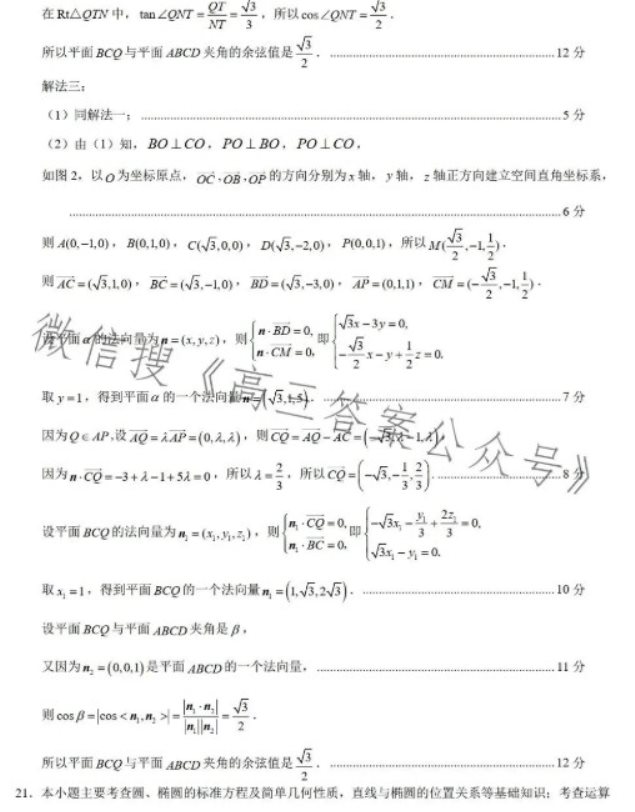 在 Rt△QTN 中，tan∠QNT = QT/NT = √3/3，所以 cos∠QNT = √3/2．
所以平面 BCQ 与平面 ABCD 夹角的余弦值是 √3/2．……………………12 分
解法三：
（1）同解法一；……………………5 分
（2）由（1）知，BO⊥CO，PO⊥BO，PO⊥CO，
如图 2，以 O 为坐标原点，OC、OB、OP 的方向分别为 x 轴，y 轴，z 轴正方向建立空间直角坐标系，
……………………6 分
则 A(0,−1,0)，B(0,1,0)，C(√3,0,0)，D(√3,−2,0)，P(0,0,1)，所以 M(√3/2,−1,1/2)．
则 AC = (√3,1,0)，BC = (√3,−1,0)，BD = (√3,−3,0)，AP = (0,1,1)，CM = (−√3/2,−1,1/2)．
设平面 α 的法向量为 n = (x,y,z)，则 { n·BD = 0, n·CM = 0, 即 { √3x − 3y = 0, −√3/2 x − y + 1/2 z = 0.
取 y = 1，得到平面 α 的一个法向量 n = (√3,1,5)．……………………7 分
因为 Q∈AP，设 AQ = λAP = (0,λ,λ)，则 CQ = AQ − AC = (−√3,λ−1,λ)，
因为 n·CQ = −3 + λ − 1 + 5λ = 0，所以 λ = 2/3，所以 CQ = (−√3,−1/3,2/3)．……………………8 分
设平面 BCQ 的法向量为 n₁ = (x₁,y₁,z₁)，则 { n₁·CQ = 0, n₁·BC = 0, 即 { −√3x₁ − y₁/3 + 2z₁/3 = 0, √3x₁ − y₁ = 0.
取 x₁ = 1，得到平面 BCQ 的一个法向量 n₁ = (1,√3,2√3)．……………………10 分
设平面 BCQ 与平面 ABCD 夹角是 β，
又因为 n₂ = (0,0,1) 是平面 ABCD 的一个法向量，……………………11 分
则 cosβ = |cos<n₁,n₂>| = |n₁·n₂|/(|n₁||n₂|) = √3/2．
所以平面 BCQ 与平面 ABCD 夹角的余弦值是 √3/2．……………………12 分
21．本小题主要考查圆、椭圆的标准方程及简单几何性质，直线与椭圆的位置关系等基础知识；考查运算
微信搜《高三答案公众号》